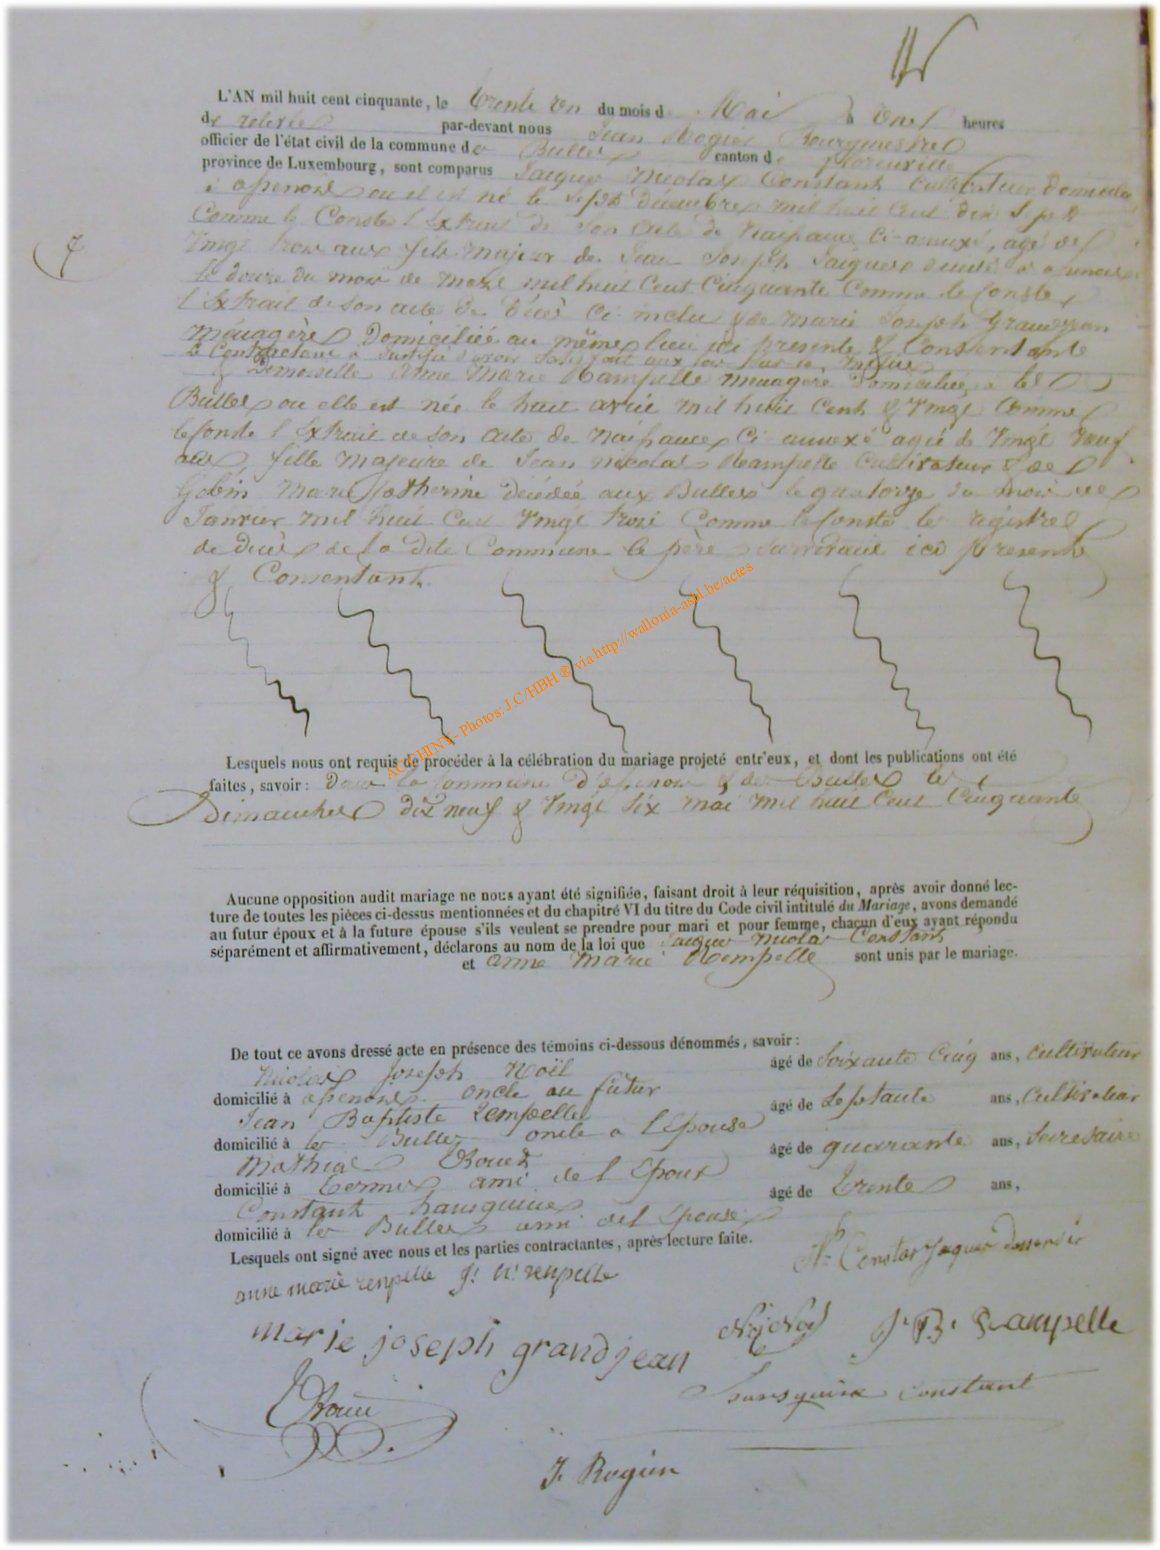 L'AN mil huit cent cinquante, le trente un du mois de Mai à onze heures
de relevée par-devant nous Jean Rogier Bourgmestre
officier de l'état civil de la commune de Bulles canton de florenville
province de Luxembourg, sont comparus Jacques Nicolas Constant Cultivateur domicilié
à ou il est né le sept décembre mil huit cent dix sept
Comme le Conste l'Extrait de son acte de naissance ci-annexé, agé de
Vingt trois ans fils majeur de Jean Joseph Jacques décédé à
le douze du mois de mil huit Cent Cinquante Comme le Conste
l'Extrait de son acte de Décès ci inclu & de Marie Joseph Grandjean
ménagère Domiciliée au même lieu ici présente & Consentante
le Contractant a Justifié d'avoir satisfait aux lois sur la milice
& Demoiselle Anne Marie Rampelle ménagère Domiciliée à les
Bulles ou elle est née le huit avril mil huit Cent & Vingt Comme
le Conste l'Extrait de son acte de naissance Ci-annexé agée de Vingt neuf
ans, fille Majeure de Jean nicolas Rampelle Cultivateur & de
Gobin Marie Catherine Décédée aux Bulles le quatorze du mois de
Janvier mil huit Cent Vingt trois Comme le Conste le régistre
de décès de la dite Commune le père Survivant ici présente
& Consentant
ACCCHINY- Photos: J.C/HBH ® via http://wallonia-asbl.be/actes
Lesquels nous ont requis de procéder à la célébration du mariage projeté entr'eux, et dont les publications ont été
faites, savoir: Dans la Commune & de Bulles les
Dimanches dix neuf & Vingt Six mai mil huit Cent Cinquante
Aucune opposition audit mariage ne nous ayant été signifiée, faisant droit à leur réquisition, après avoir donné lec-
ture de toutes les pièces ci-dessus mentionnées et du chapitré VI du titre du Code civil intitulé du Mariage, avons demandé
au futur époux et à la future épouse s'ils veulent se prendre pour mari et pour femme, chacun d'eux ayant répondu
séparément et affirmativement, déclarons au nom de la loi que Jacques Nicolas Constant
et anne Marie Rempelle sont unis par le mariage.
De tout ce avons dressé acte en présence des témoins ci-dessous dénommés, savoir:
Nicolas Joseph Noël âgé de Soixante Cinq ans, Cultivateur
domicilié à oncle au futur
Jean Baptiste Rempelle âgé de Septante ans, Cultivateur
domicilié à les Bulles oncle a l'Epouse
Mathias âgé de quarante ans, Secrétaire
domicilié à Termes ami de l'Epoux
Constant hansquine âgé de Trente ans,
domicilié à les Bulles ami de l'Epouse
Lesquels ont signé avec nous et les parties contractantes, après lecture faite.
anne marie renpelle J. N. renpelle
marie joseph grandjean J. B. Rampelle
hansquine constant
J. Rogier